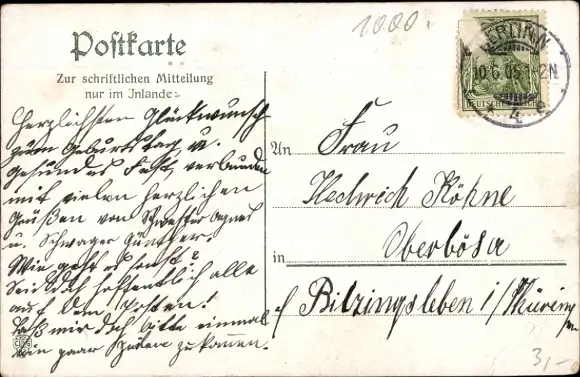 1000.
Postkarte
Zur schriftlichen Mitteilung
nur im Inlande.
Herzlichsten Glückwunsch
zum Geburtstag, u.
gesundes Fest, verbunden
mit vielen herzlichen
Grüßen von Schwester Agnes
u. Schwager Günther.
Wie geht es sonst?
Seid doch hoffentlich alle
auf dem Posten!
Laß mir doch bitte einmal
ein paar Zeilen zukommen.
BERLIN
10.6.05. 1-2N
4
DEUTSCHES REICH
An Frau
Hedwich Köhne
in Oberbösa
Bilzingsleben i/Thüring
3,-